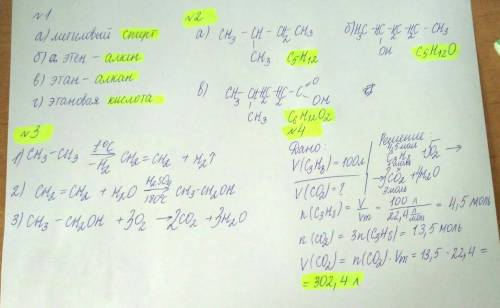 №1
а) метиловый спирт
б) этен – алкен
в) этан – алкан
г) этановая кислота
№2
а) CH3 – CH – CH2 CH3
CH3 C5H12
б) H3C – C – C – C – CH3
H2 H2
OH C5H12O
в) CH3 – CH – C – C – C
H2 H2 O
OH
CH3 C6H12O2
№3
1) CH3–CH3 t°C –H2 CH2=CH2 + H2↑
2) CH2=CH2 + H2O H2SO4 180°C CH3–CH2OH
3) CH3–CH2OH + 3O2 → 2CO2 + 3H2O
№4
Дано:
V(C3H8) = 100 л
V(CO2) = ?
Решение:
4,5 моль
C3H8 + O2 →
CO2 + H2O
3 моль
n(C3H8) = V/Vm = 100/22,4 л/моль = 4,5 моль
n(CO2) = 3n(C3H8) = 13,5 моль
V(CO2) = n(CO2) · Vm = 13,5 · 22,4 =
= 302,4 л